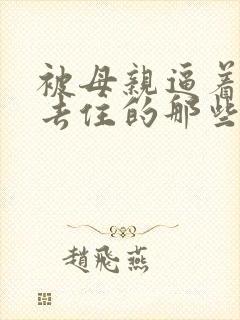 被母親逼着
去住的那些
趙飛燕